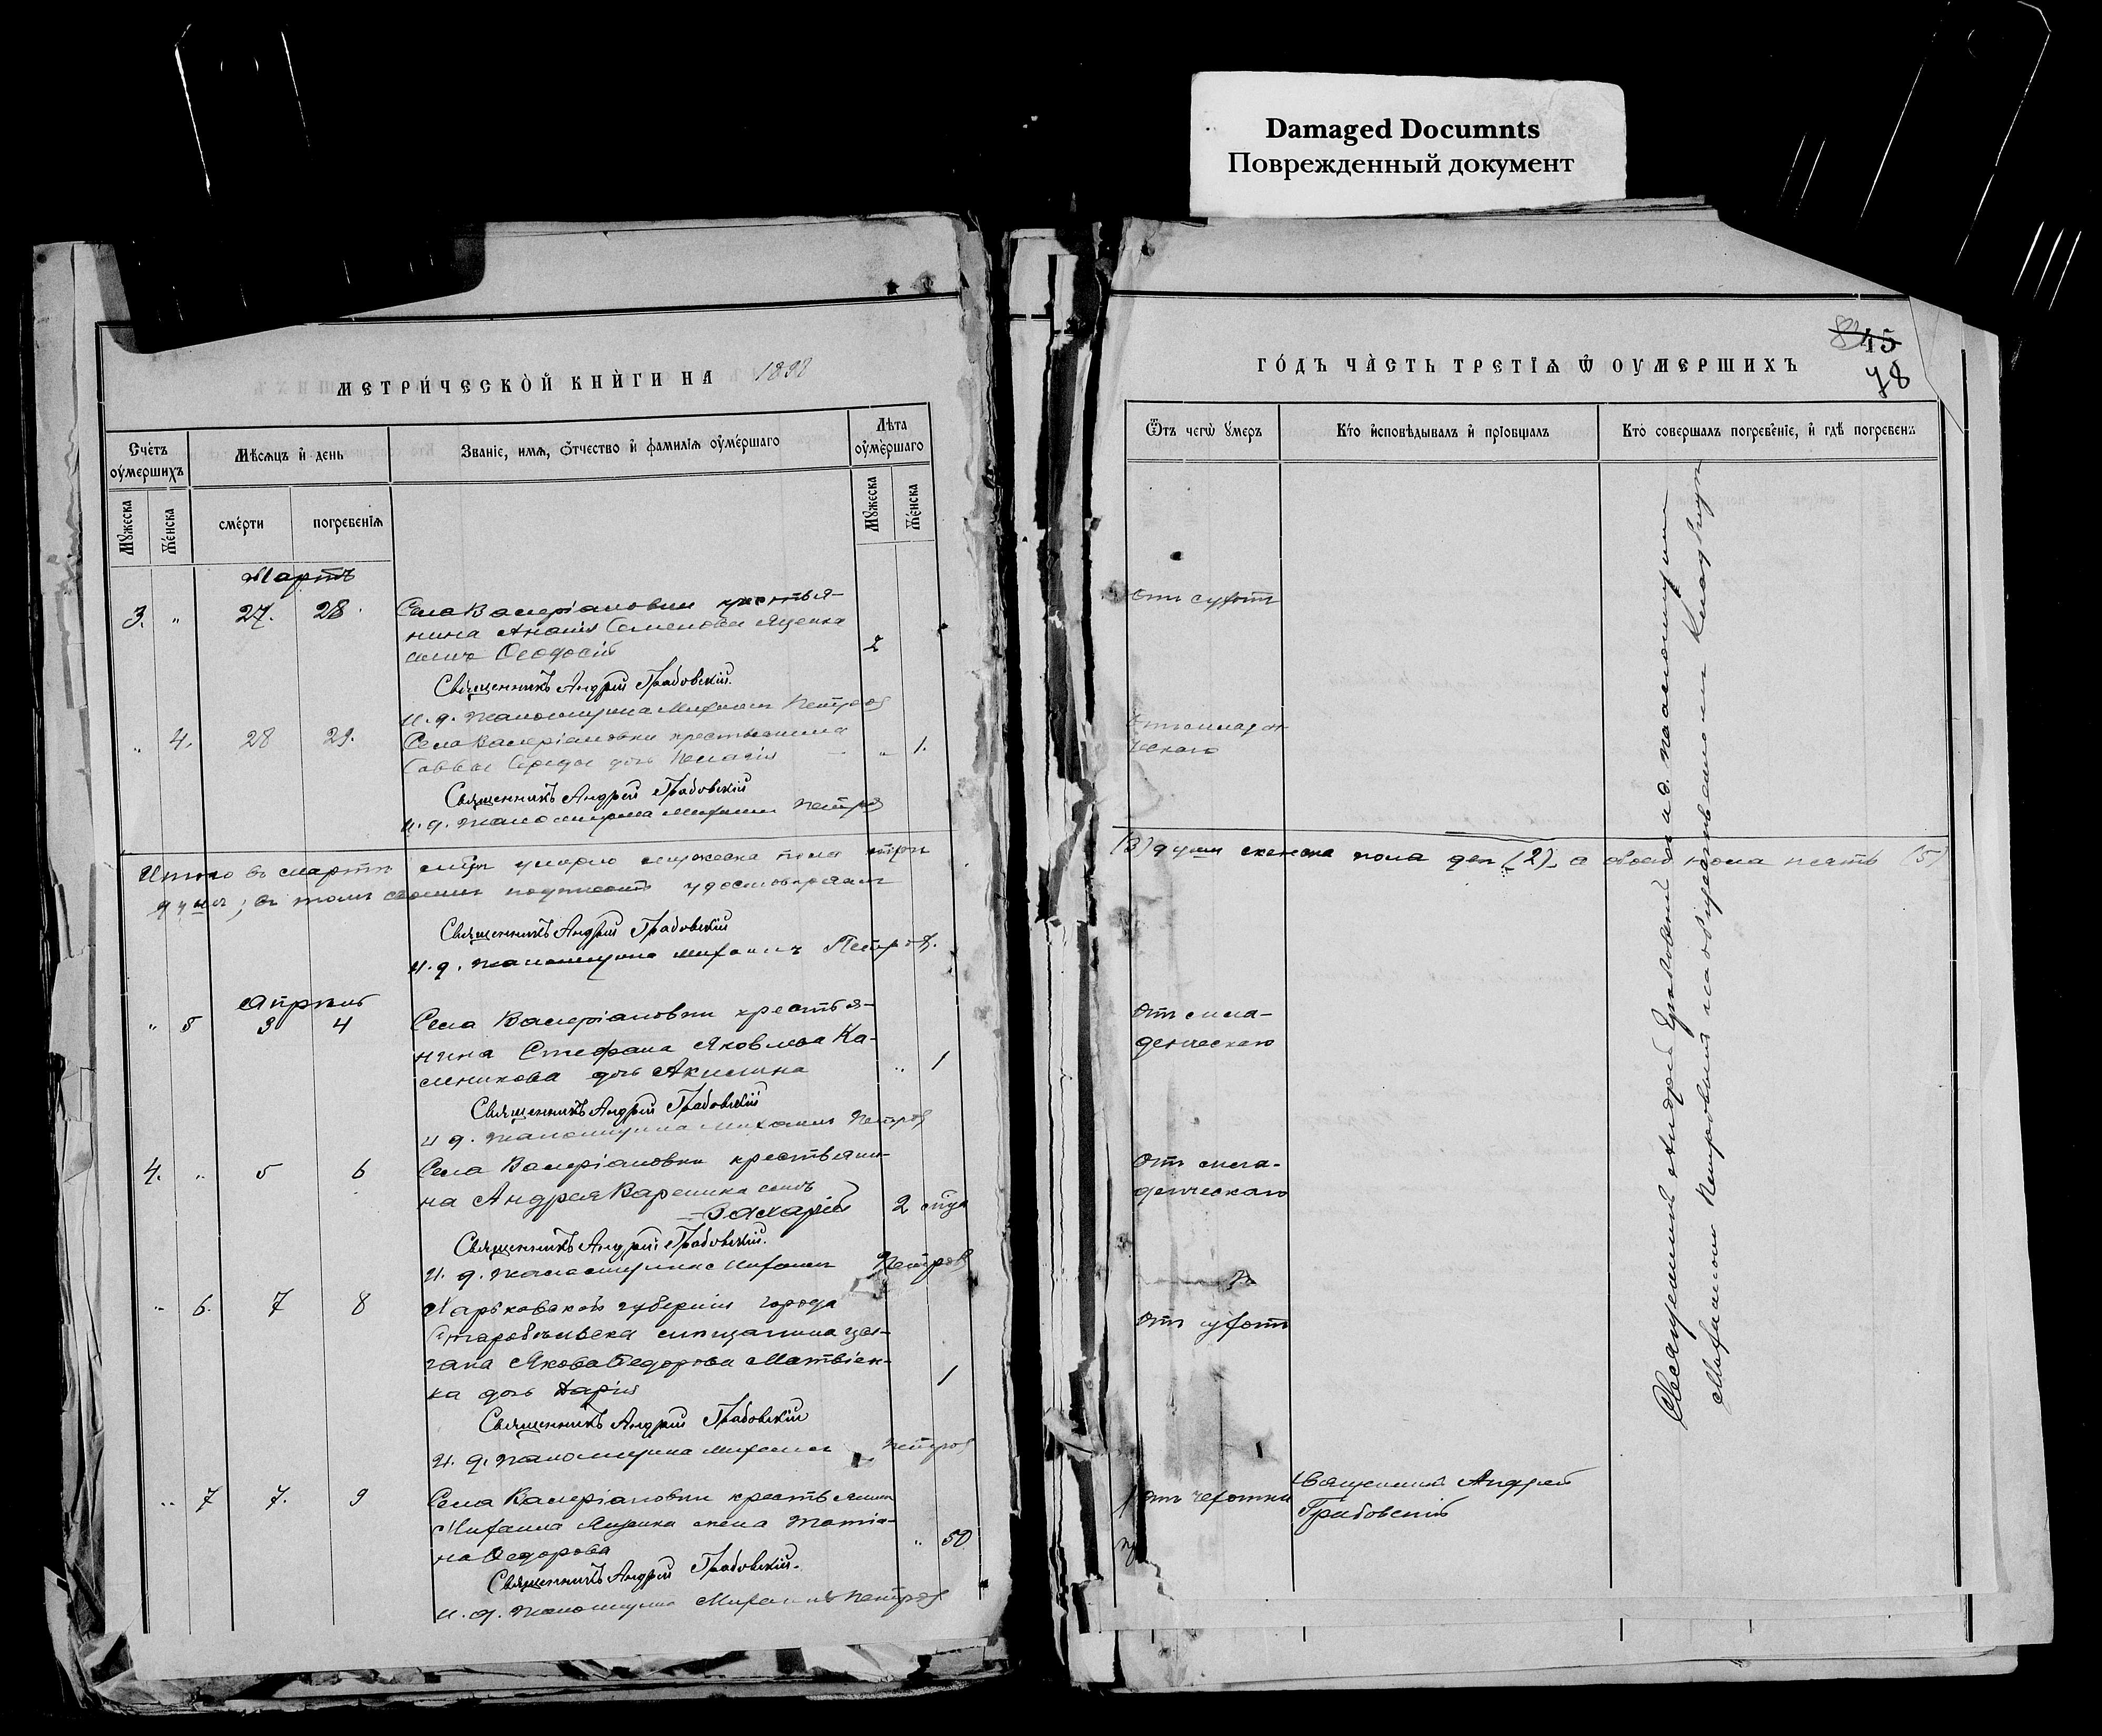 Damaged Documnts
Поврежденный документ
МЕТРИ́ЧЕСКОЙ КНИ́ГИ НА 1898
Сче́тъ оу҆ме́ршихъ
Мѣ́сяцъ и҆ день
Зва́нїе, имѧ, ѻ҆́тчество и҆ фами́лїѧ оу҆ме́ршаго
Лѣ́та оу҆ме́ршаго
Мꙋжеска
Же́нска
сме́рти
погребе́нїѧ
Мꙋжеска
Же́нска
Мартъ
3. " 27. 28. Села Валеріановки крестья-
нина Ананія Семенова Яценка
сынъ Ѳеодосій 2
Священникъ Андрей Грабовскій.
И. д. псаломщика Михаилъ Петровъ
" 4. 28 29. Села Валеріановки крестьянина
Саввы Середы дочь Пелагія " 1.
Священникъ Андрей Грабовскій
И. д. псаломщика Михаилъ Петровъ
Итого въ мартѣ мѣсяцѣ умерло мужеска пола три
душъ; въ томъ своими подписями удостовѣряемъ
Священникъ Андрей Грабовскій
И. д. псаломщика Михаилъ Петровъ.
Апрѣль
" 5 3 4 Села Валеріановки крестья-
нина Стефана Яковлева Ка-
сленикова дочь Акилина " 1
Священникъ Андрей Грабовскій
И д. псаломщика Михаилъ Петровъ
4. " 5 6 Села Валеріановки крестьяни-
на Андрея Вареника сынъ
Захарій 2 мѣс.
Священникъ Андрей Грабовскій.
И. д. псаломщика Михаилъ Петровъ
" 6. 7 8 Харьковской губерніи города
Старобѣльска мѣщанина цы-
гана Якова Ѳедорова Матвіен-
ка дочь Дарія 1
Священникъ Андрей Грабовскій
И. д. псаломщика Михаилъ Петровъ
" 7 7. 9 Села Валеріановки крестьянина
Михаила Яценка жена Татіа-
на Ѳедорова " 50
Священникъ Андрей Грабовскій.
И. д. псаломщика Михаилъ Петровъ
45
78
ГО́ДЪ ЧА́СТЬ ТРЕ́ТЇѦ Ѽ ОУМЕРШИХЪ
Ѿтъ чегѡ̀ ᲂумеръ
Кто и҆сповѣ́дывалъ и҆ прїобща́лъ
Кто̀ соверша́лъ погребе́нїе, и҆ гдѣ̀ погребе́ны
Отъ сухотъ
Отъ младен
ческаго
(3) душъ женска пола двѣ (2), а обоего пола пять (5)
Отъ мла-
денческаго
Отъ мла-
денческаго
Отъ сухотъ
Отъ чахотки
Священникъ Андрей
Грабовскій
Священникъ Андрей Грабовскій и и.д. псаломщика
Михаиломъ Петровымъ на общественномъ кладбищѣ